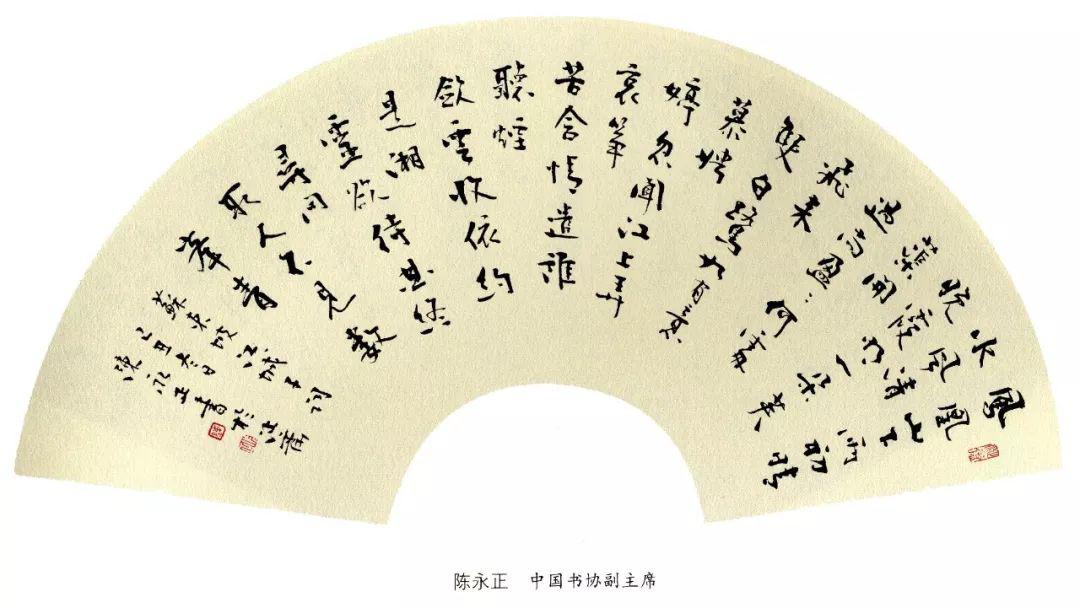 鳳凰山下雨初晴
水風清
晚霞明一朵芙
蕖開
過尚盈:何處
飛來
雙白鷺如有意
慕娉
婷忽聞江上弄
哀箏
苦含情遣誰
聽煙
斂雲收依約
是湘
靈欲待曲終
尋問
取人不見數
峯青
蘇東坡江城子詞
己丑冬日
陳永正書於沚齋
陈永正 中国书协副主席